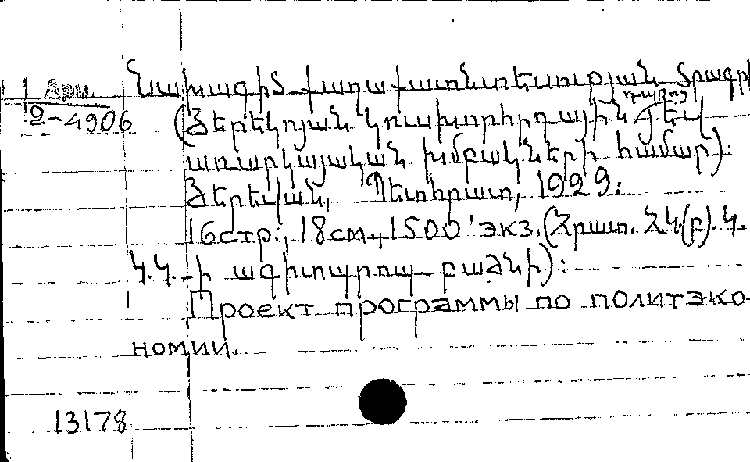 Արխ.
2-4906
Նախագիծ քաղաքատնտեսության ծրագրի
դպրոց
(Յերեկոյան կուսխորհրդային և
առարկայական խմբակների համար):
Յերեվան, Պետհրատ, 1929:
16стр., 18см., 1500 экз. (Հրատ. ՀԿ(բ)Կ.
Կ.Կ.-ի ագիտպրոպ բաժնի):
Проект программы по политэко-
номии.
13178